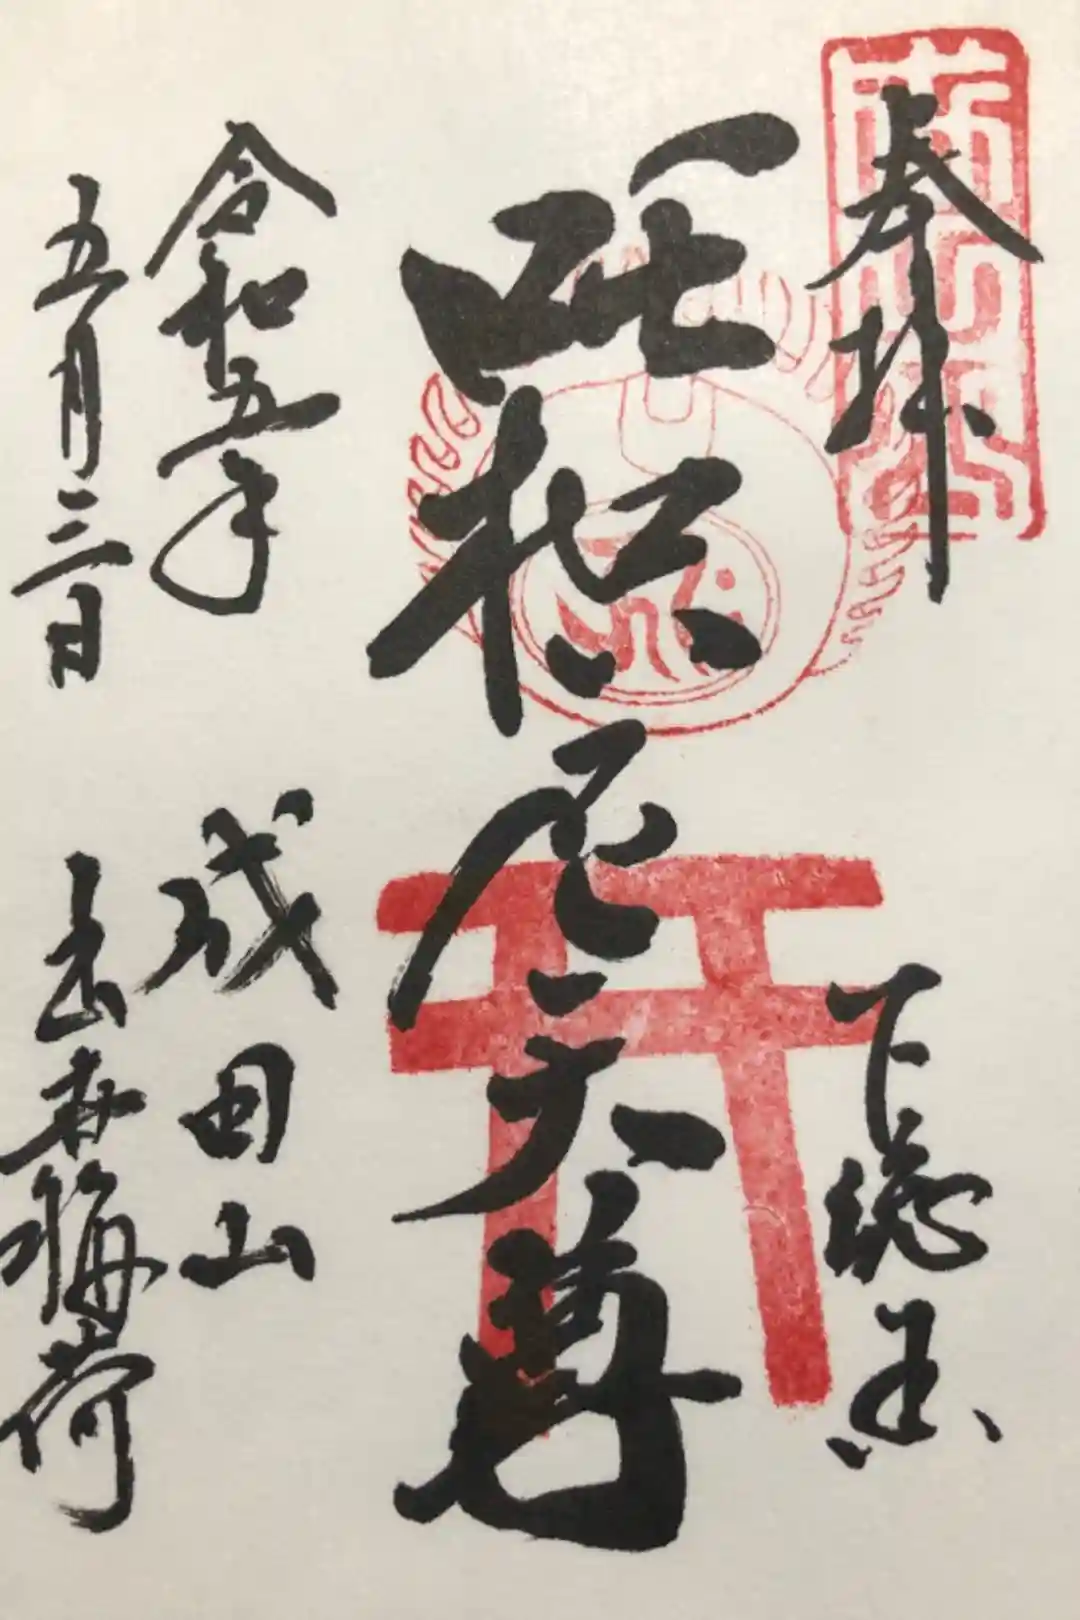 奉拝
下総国
吒枳尼天尊
令和五年
成田山
五月三日
出世稲荷